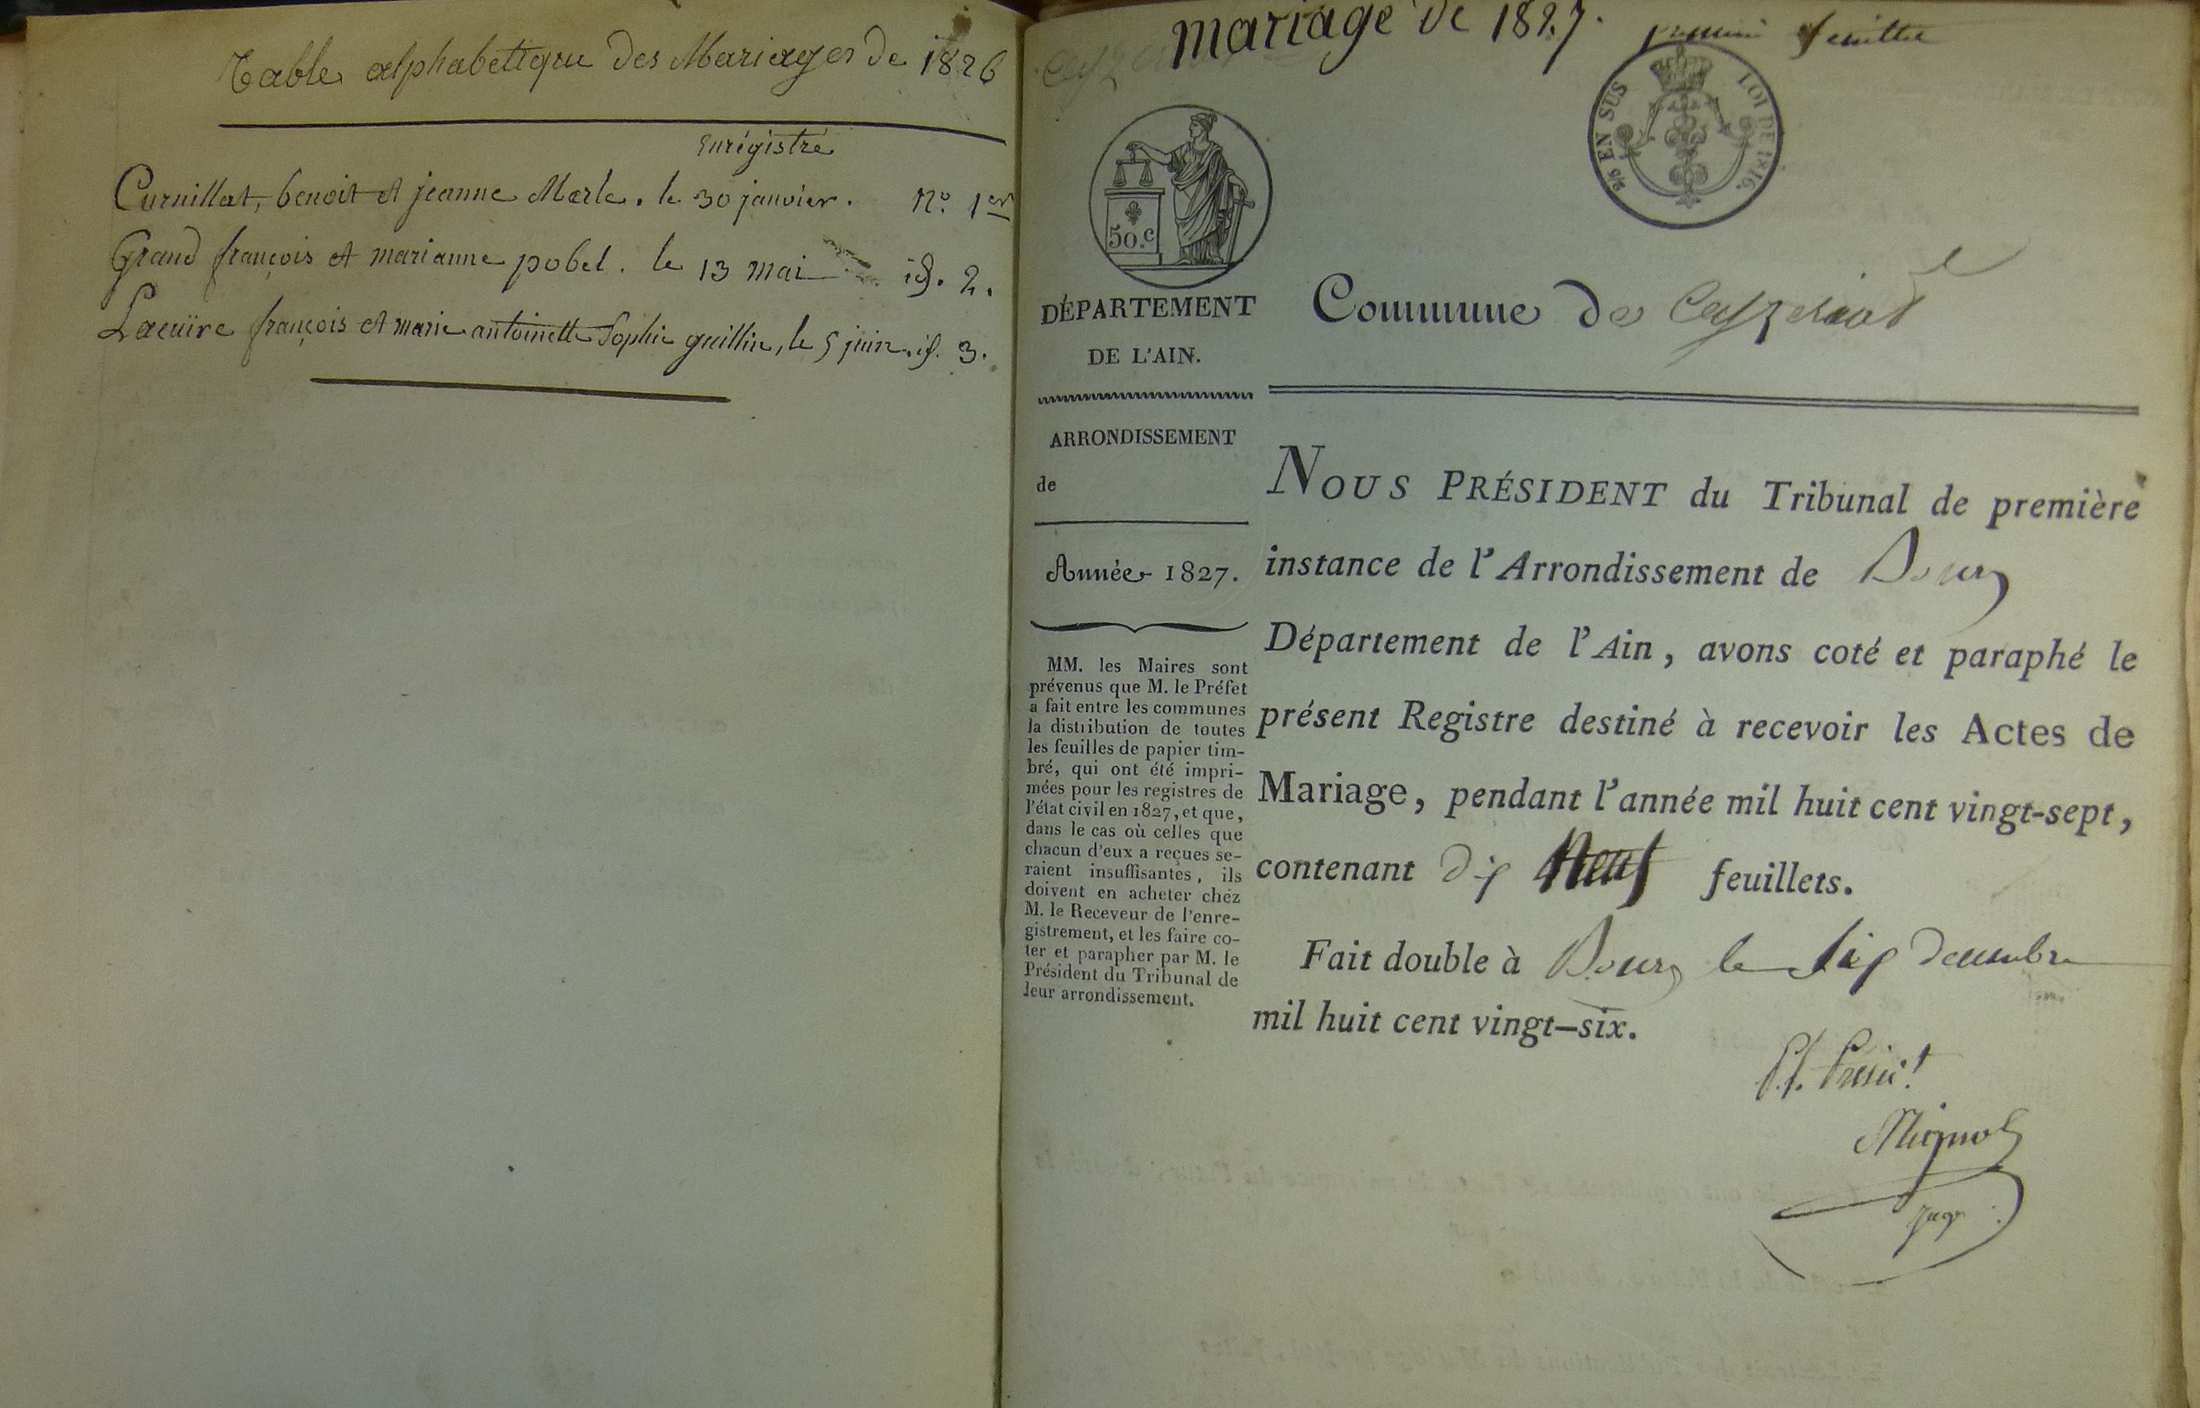 Table alphabetique des Mariages de 1826
Enrégistré
Curnillat, benoit et jeanne Merle. le 30 janvier. N.o 1er
Grand françois et marianne pobel. le 13 mai id. 2.
Lacuire françois et marie antoinette Sophie guillin, le 5 juin. id. 3.
mariage de 1827. premier feuillet
2/5 EN SUS LOI DE 1816.
50.c
DÉPARTEMENT
DE L'AIN.
Commune de Ceyzeriat
ARRONDISSEMENT
de
Année 1827.
MM. les Maires sont
prévenus que M. le Préfet
a fait entre les communes
la distribution de toutes
les feuilles de papier tim-
bré, qui ont été impri-
mées pour les registres de
l'état civil en 1827, et que,
dans le cas où celles que
chacun d'eux a reçues se-
raient insuffisantes, ils
doivent en acheter chez
M. le Receveur de l'enre-
gistrement, et les faire co-
ter et parapher par M. le
Président du Tribunal de
leur arrondissement.
NOUS PRÉSIDENT du Tribunal de première
instance de l'Arrondissement de Bourg
Département de l'Ain, avons coté et paraphé le
présent Registre destiné à recevoir les Actes de
Mariage, pendant l'année mil huit cent vingt-sept,
contenant dix neuf feuillets.
Fait double à Bourg le six decembre
mil huit cent vingt-six.
Mignot
Juge